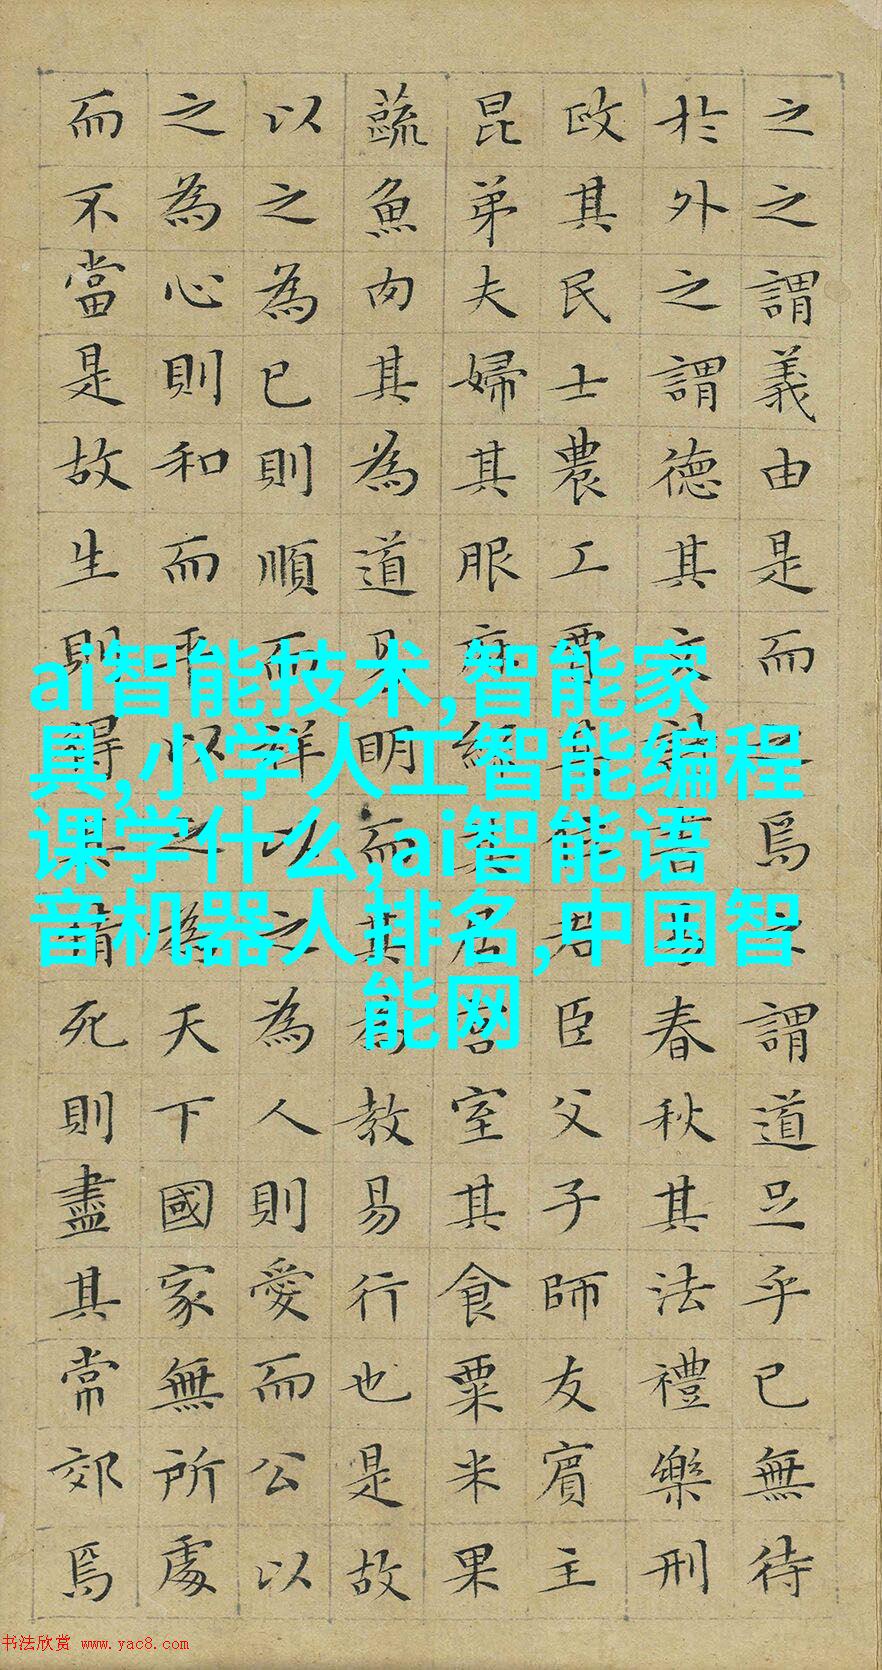 之之謂義由是而焉謂道足乎已無待
於外之謂德其春秋其法禮樂刑
政其民士農工其君臣父子師友賓主
昆弟夫婦其服其居室其食粟米果
蔬魚肉其為道明而其教易行也是故
以之為已則順而祥以之為人則愛而公以
之為心則和而平以之為天下國家無所處
而不當是故生則得死則盡其常郊焉
ai智能技术,智能家
具,小学人工智能编程
课学什么,ai智能语
音机器人排名,中国智
能网
书法欣赏 www.yac8.com